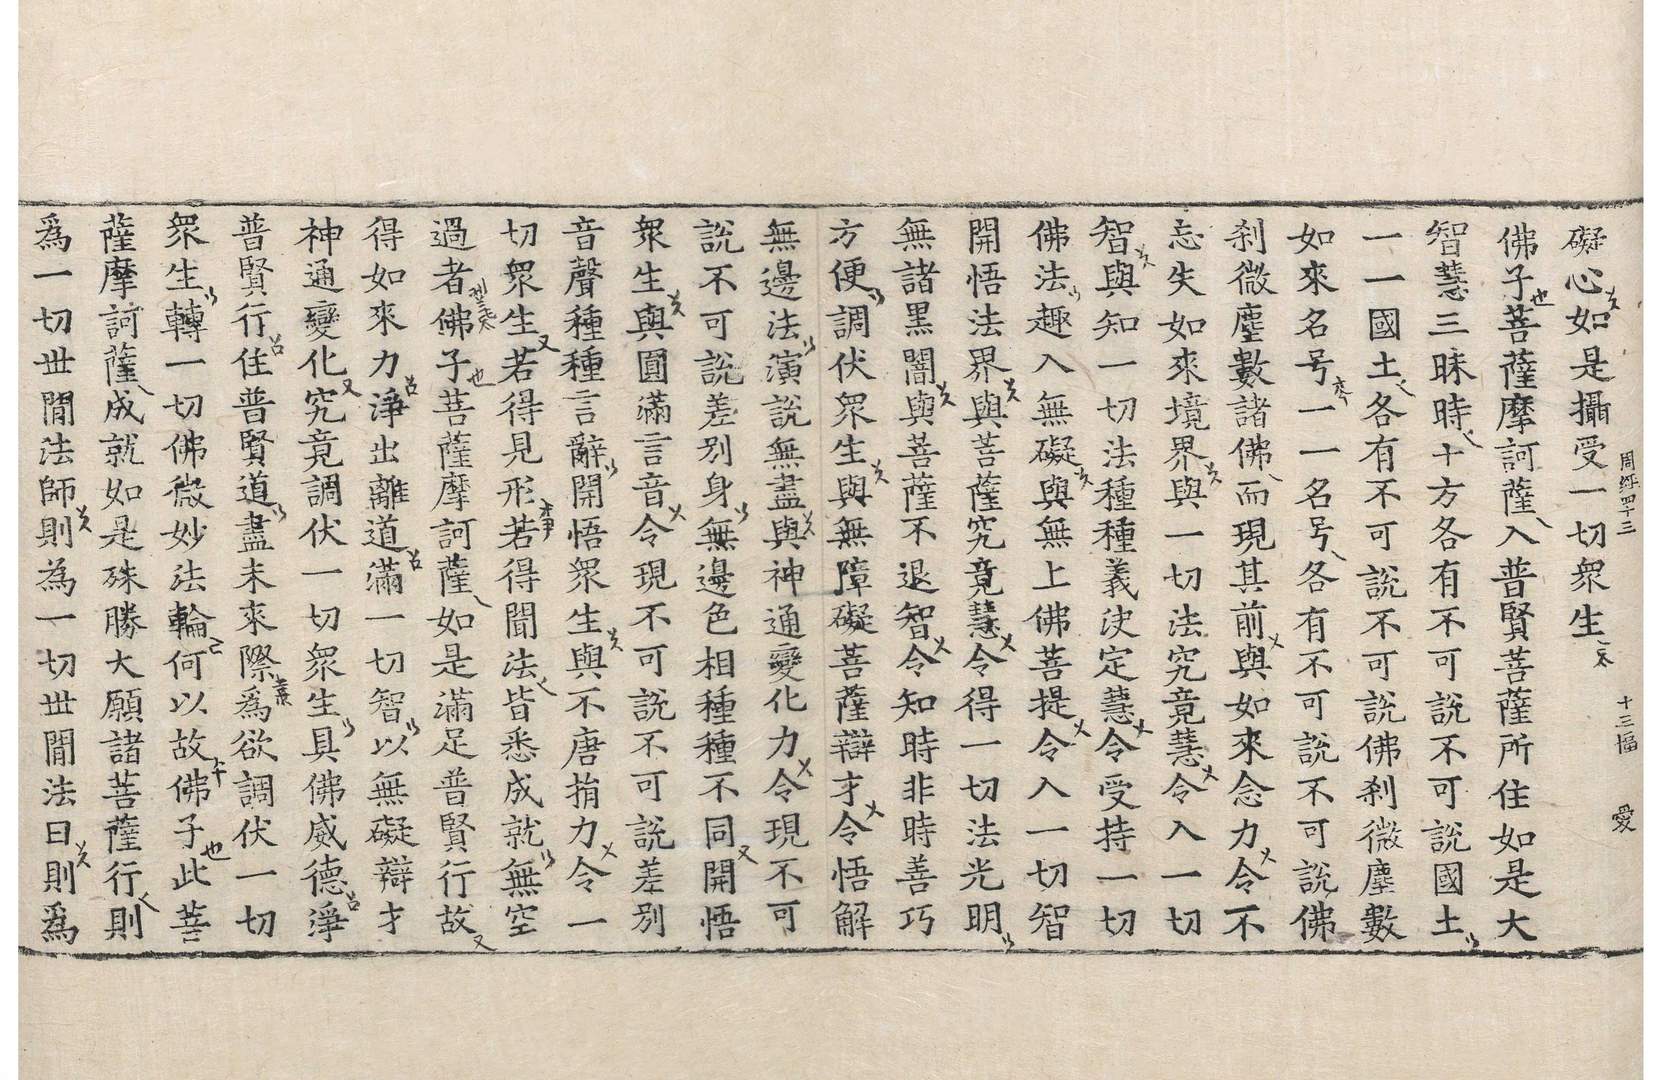 周經四十三 十三幅 愛
礙心如是攝受一切衆生
佛子菩薩摩訶薩入普賢菩薩所住如是大
智慧三昧時十方各有不可說不可說國土
一一國土各有不可說不可說佛刹微塵數
如來名号一一名号各有不可說不可說佛
刹微塵數諸佛而現其前與如來念力令不
忘失如來境界與一切法究竟慧令入一切
智與知一切法種種義決定慧令受持一切
佛法趣入無礙與無上佛菩提令入一切智
開悟法界與菩薩究竟慧令得一切法光明
無諸黑闇與菩薩不退智令知時非時善巧
方便調伏衆生與無障礙菩薩辯才令悟解
無邊法演說無盡與神通變化力令現不可
說不可說差别身無邊色相種種不同開悟
衆生與圓滿言音令現不可說不可說差别
音聲種種言辭開悟衆生與不唐捐力令一
切衆生若得見形若得聞法皆悉成就無空
過者佛子菩薩摩訶薩如是滿足普賢行故
得如來力淨出離道滿一切智以無礙辯才
神通變化究竟調伏一切衆生具佛威德淨
普賢行住普賢道盡未來際爲欲調伏一切
衆生轉一切佛微妙法輪何以故佛子此菩
薩摩訶薩成就如是殊勝大願諸菩薩行則
爲一切世間法師則爲一切世間法日則爲